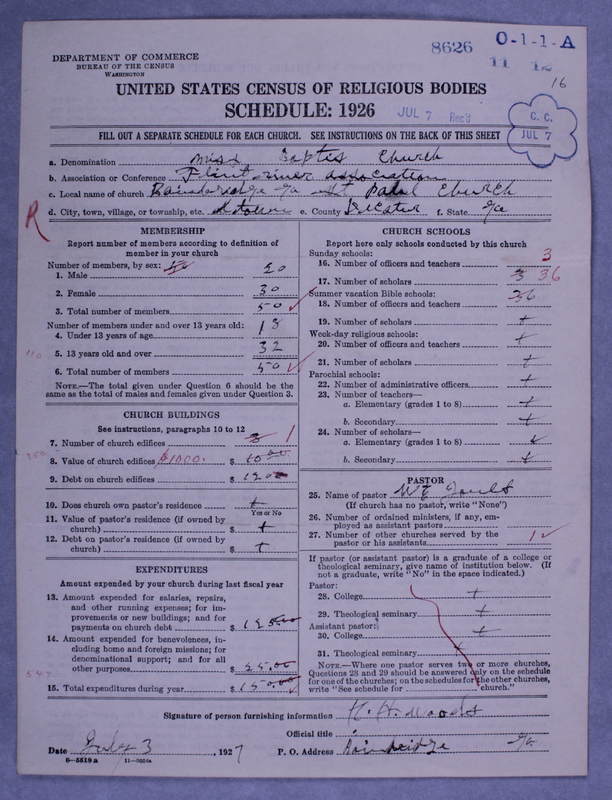 8626
O-1-1-A
11 12
16
DEPARTMENT OF COMMERCE
BUREAU OF THE CENSUS
WASHINGTON
UNITED STATES CENSUS OF RELIGIOUS BODIES
SCHEDULE: 1926
JUL 7 Rec'd
C. C.
JUL 7
FILL OUT A SEPARATE SCHEDULE FOR EACH CHURCH. SEE INSTRUCTIONS ON THE BACK OF THIS SHEET
a. Denomination Miss Baptis Church
b. Association or Conference Flint river association
c. Local name of church Ga St Church
d. City, town, village, or township, etc. town e. County f. State Ga
R
MEMBERSHIP
Report number of members according to definition of
member in your church
Number of members, by sex:
1. Male 20
2. Female 30
3. Total number of members 50
Number of members under and over 13 years old:
4. Under 13 years of age 18
5. 13 years old and over 32
6. Total number of members 50
NOTE.—The total given under Question 6 should be
the same as the total of males and females given under Question 3.
CHURCH BUILDINGS
See instructions, paragraphs 10 to 12
7. Number of church edifices 1
8. Value of church edifices $1000. $
9. Debt on church edifices $
10. Does church own pastor's residence +
Yes or No
11. Value of pastor's residence (if owned by
church) $ +
12. Debt on pastor's residence (if owned by
church) $ +
EXPENDITURES
Amount expended by your church during last fiscal year
13. Amount expended for salaries, repairs,
and other running expenses; for im-
provements or new buildings; and for
payments on church debt $ 125.00
14. Amount expended for benevolences, in-
cluding home and foreign missions; for
denominational support; and for all
other purposes $ 25.00
15. Total expenditures during year $ 150.00
CHURCH SCHOOLS
Report here only schools conducted by this church
Sunday schools:
16. Number of officers and teachers 3
17. Number of scholars 3 36
Summer vacation Bible schools:
18. Number of officers and teachers 36
19. Number of scholars +
Week-day religious schools:
20. Number of officers and teachers +
21. Number of scholars +
Parochial schools:
22. Number of administrative officers +
23. Number of teachers—
a. Elementary (grades 1 to 8) +
b. Secondary +
24. Number of scholars—
a. Elementary (grades 1 to 8) +
b. Secondary +
PASTOR
25. Name of pastor
(If church has no pastor, write "None")
26. Number of ordained ministers, if any, em-
ployed as assistant pastors
27. Number of other churches served by the
pastor or his assistants 1
If pastor (or assistant pastor) is a graduate of a college or
theological seminary, give name of institution below. (If
not a graduate, write "No" in the space indicated.)
Pastor:
28. College +
29. Theological seminary +
Assistant pastor:
30. College +
31. Theological seminary +
NOTE.—Where one pastor serves two or more churches,
Questions 28 and 29 should be answered only on the schedule
for one of the churches; on the schedules for the other churches,
write "See schedule for church."
Signature of person furnishing information H. H. Woods
Official title
Date July 3, 1927
P. O. Address Bainbridge Ga
8—5519a 11—9604a